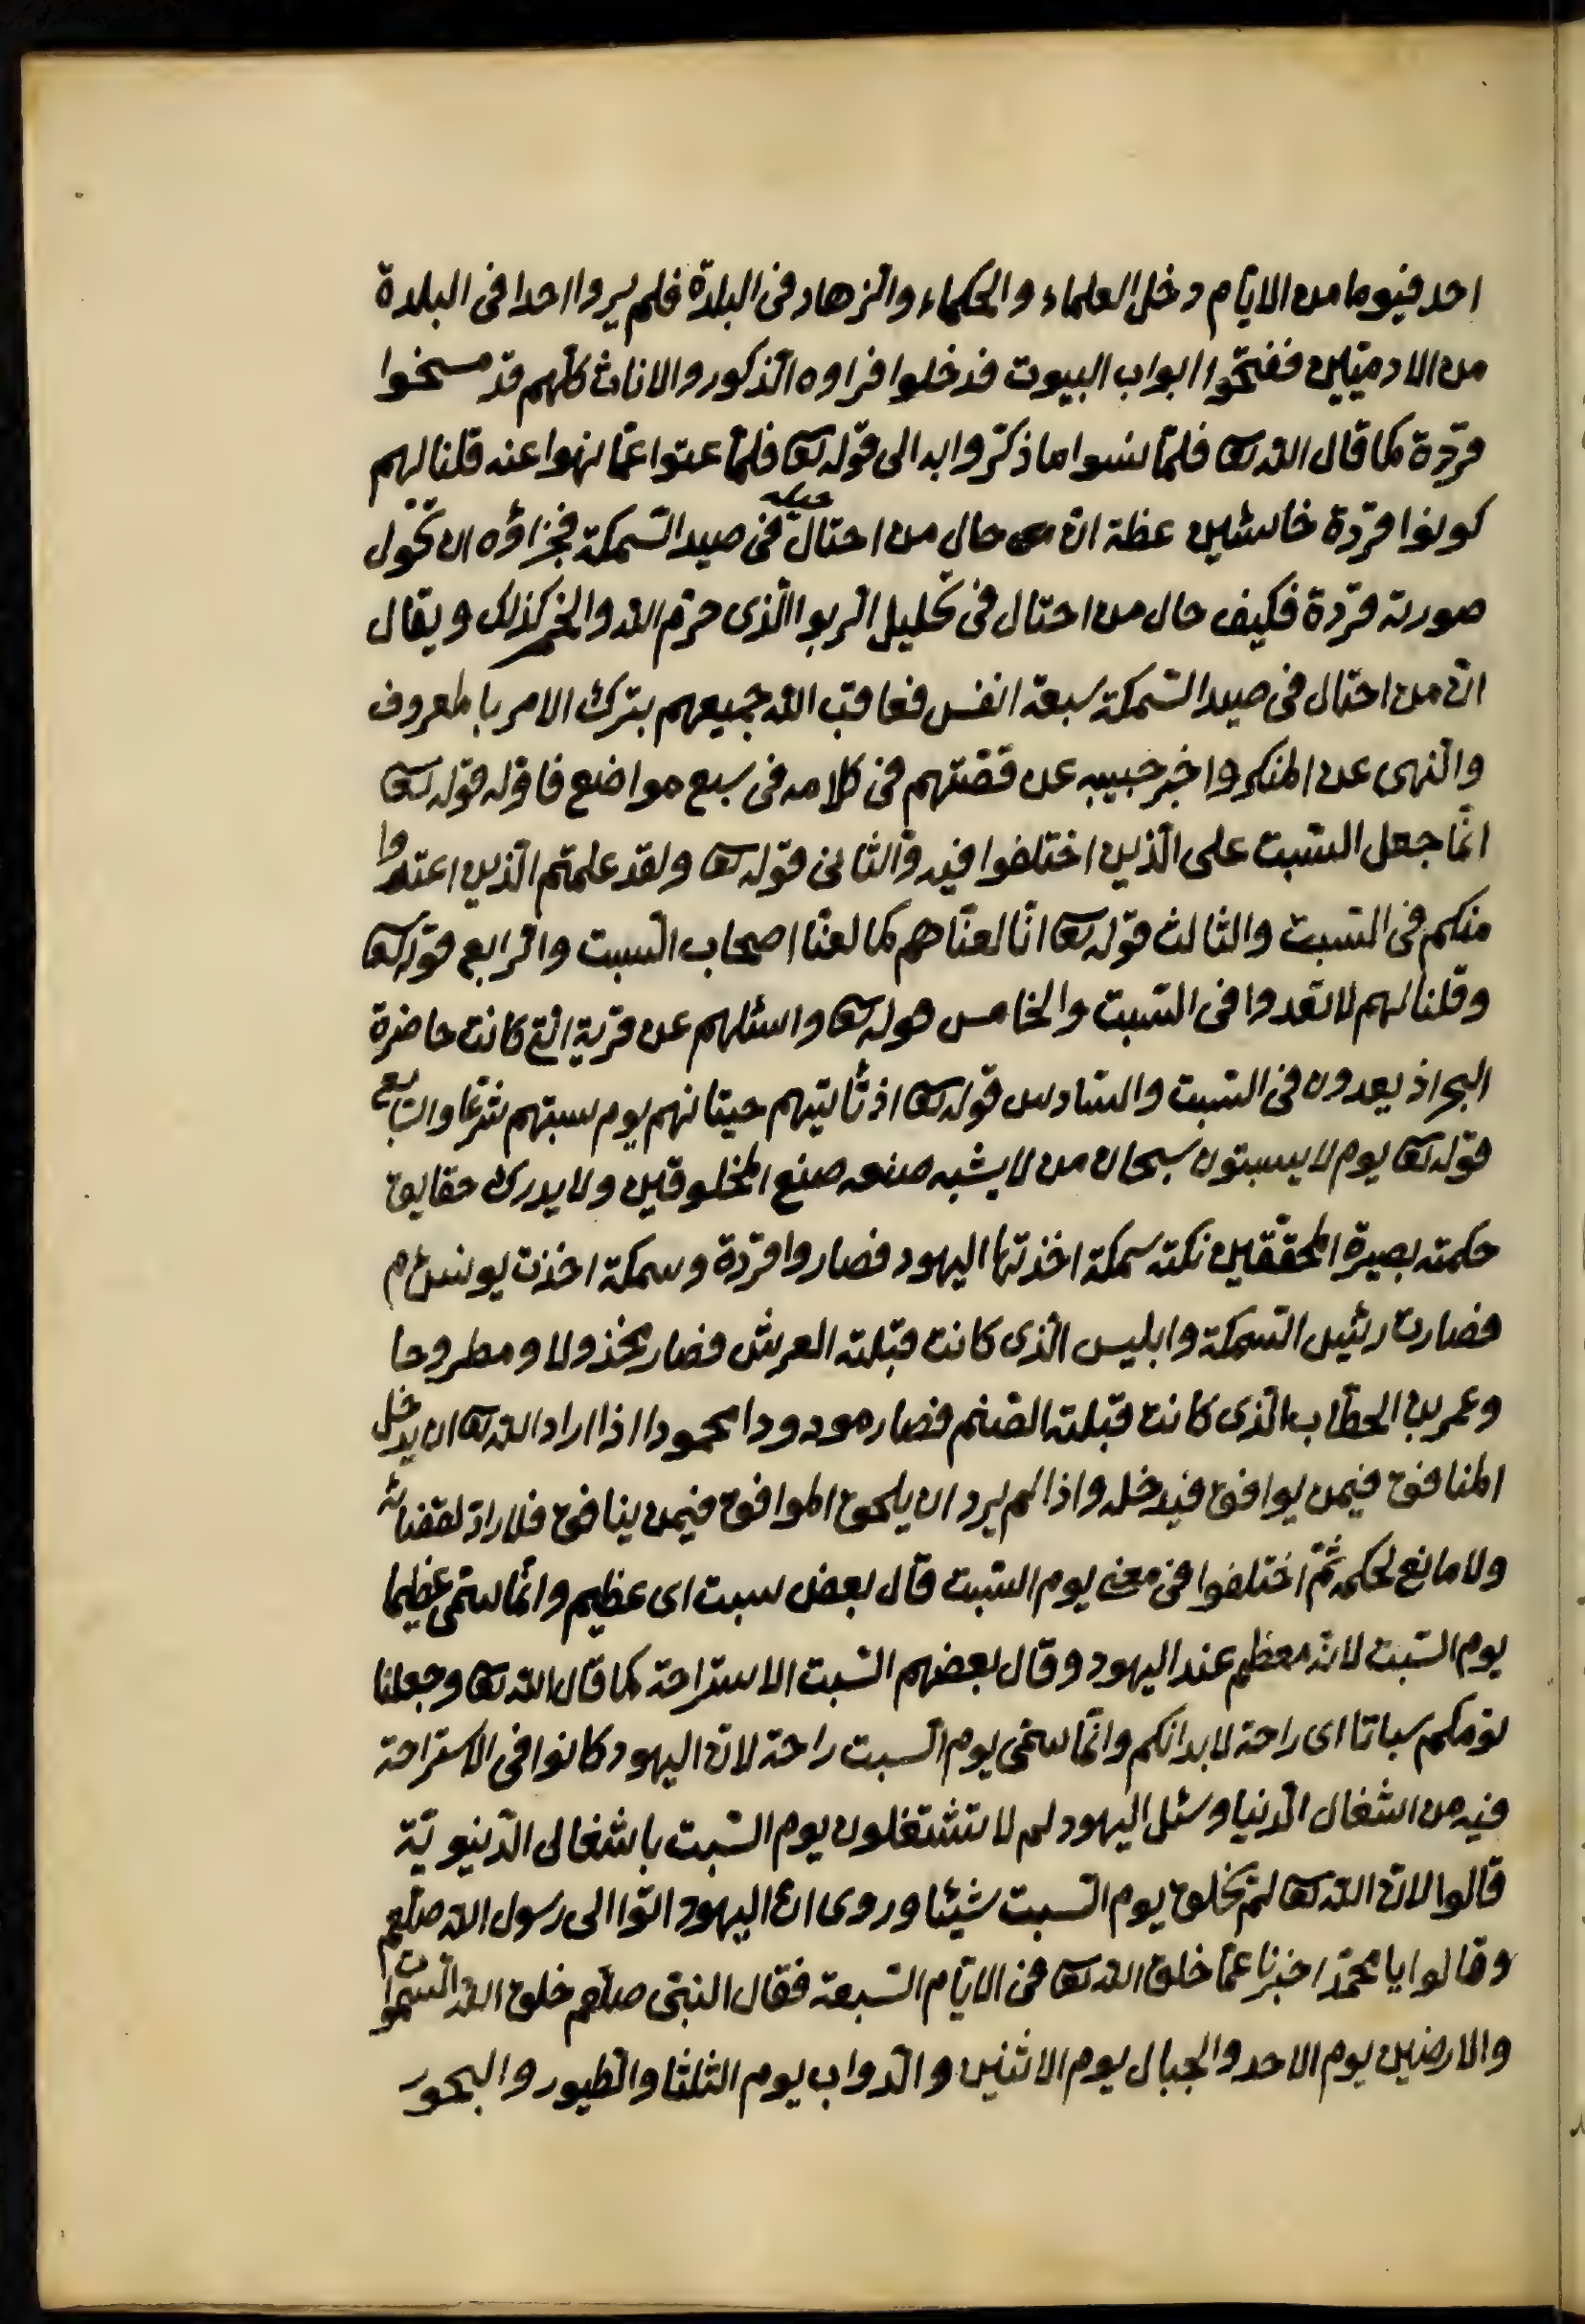 احد فيوما من الايام دخل العلماء والحكماء والزهاد فى البلدة فلم يروا احدا فى البلدة
من الادميين ففتحوا ابواب البيوت فدخلوا فراوه الذكور والاناث كلهم قد مسخوا
قردة كما قال الله تعا فلما نسوا ما ذكروا به الى قوله تعا فلما عتوا عما نهوا عنه قلنا لهم
كونوا قردة خاسئين عظة ان حال من احتال حيلة فى صيد السمكة فجزاؤه ان تحول
صورته قردة فكيف حال من احتال فى تحليل الربوا الذى حرم الله والخمر كذلك ويقال
ان من احتال فى صيد السمكة سبعة انفس فعاقب الله جميعهم بترك الامر بالمعروف
والنهى عن المنكر واخبر حبيبه عن قصتهم فى كلامه فى سبع مواضع فاوله قوله تعا
انما جعل السبت على الذين اختلفوا فيه والثانى قوله تعا ولقد علمتم الذين اعتدوا
منكم فى السبت والثالث قوله تعا انا لعناهم كما لعنا اصحاب السبت والرابع قوله تعا
وقلنا لهم لا تعدوا فى السبت والخامس قوله تعا واسئلهم عن قرية التى كانت حاضرة
البحر اذ يعدون فى السبت والسادس قوله تعا اذ تأتيهم حيتانهم يوم سبتهم شرعا والسابع
قوله تعا يوم لا يسبتون سبحان من لا يشبه صنعه صنع المخلوقين ولا يدرك حقايق
حكمته بصيرة المحققين نكتة سمكة اخذتها اليهود فصاروا قردة وسمكة اخذت يونس م
فصارت رئيس السمكة وابليس الذى كانت قبلته العرش فصار مخذولا ومطروحا
وعمر بن الخطاب الذى كانت قبلته الصنم فصار مودودا محمودا اذا اراد الله تعا ان يدخل
المنافق فيمن يوافق فيدخله واذا لم يرد ان يلحق الموافق فيمن ينافق فلا راد لقضائه
ولا مانع لحكمه ثم اختلفوا فى معنى يوم السبت قال بعض سبت اى عظيم وانما سمى عظيما
يوم السبت لانه معظم عند اليهود وقال بعضهم السبت الاستراحة كما قال الله تعا وجعلنا
نومكم سباتا اى راحة لابدانكم وانما سمى يوم السبت راحة لان اليهود كانوا فى الاستراحة
فيه من اشغال الدنيا وسئل اليهود لم لا تشتغلون يوم السبت باشغالى الدنيوية
قالوا لان الله تعا لم يخلق يوم السبت شيئا وروى ان اليهود اتوا الى رسول الله صلعم
وقالوا يا محمد اخبرنا عما خلق الله تعا فى الايام السبعة فقال النبى صلعم خلق الله السموات
والارضين يوم الاحد والجبال يوم الاثنين والدواب يوم الثلثا والطيور والبحور